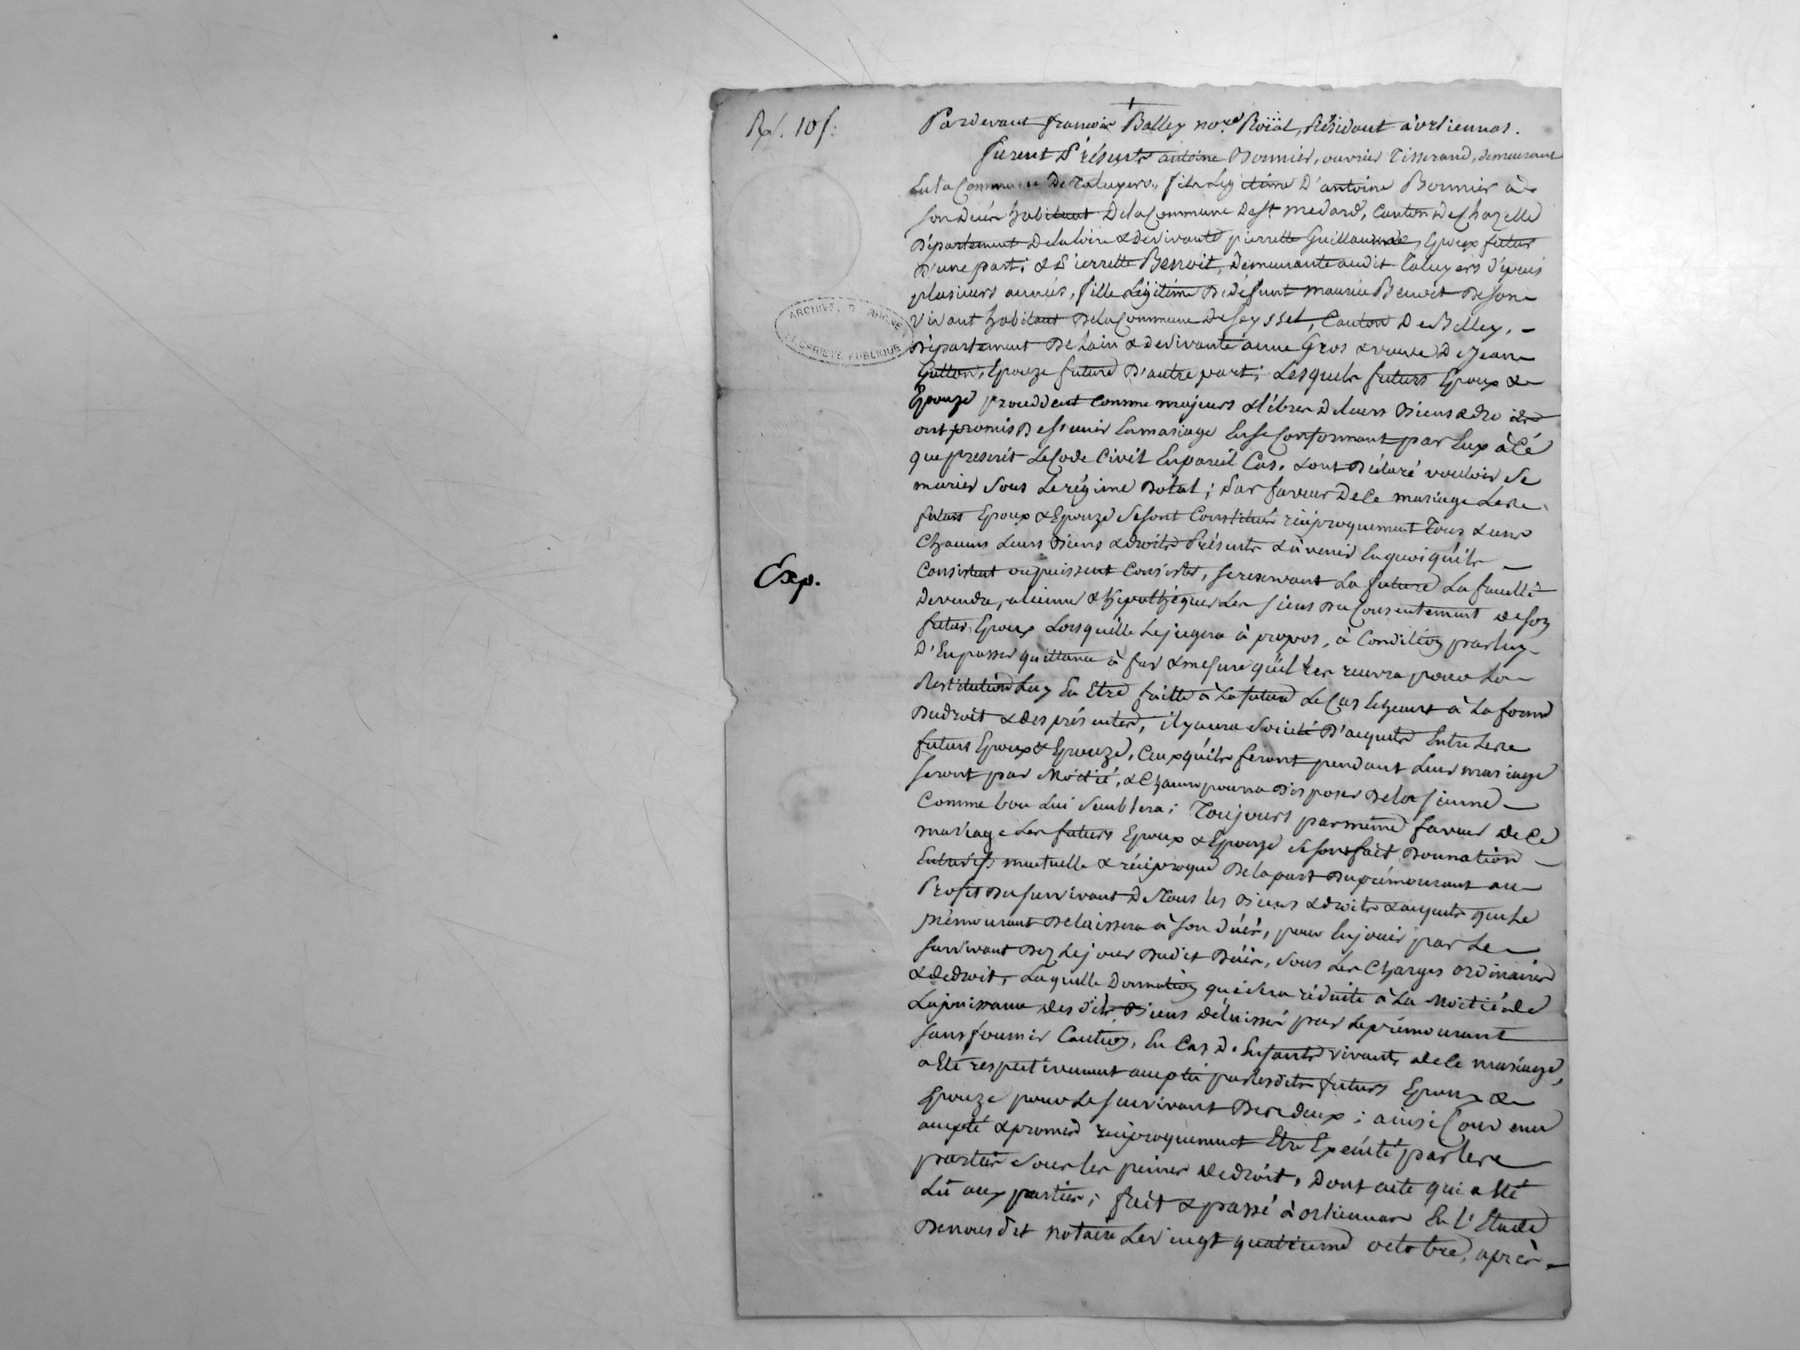 Rd. 10f:
Pardevant françois Balley no.re Roïal, Résidant à orliennas.
furent Présents antoine Bonnier, ouvrier Tisserand, demeurant
En la Commune De Taluyers, fils Légitime D'antoine Bonnier à
son Décès habitant De la Commune De St. medard, Canton de Chazelle
Département De la loire & de vivante pierrette Guillaume, Epoux futur
D'une part; & Pierrette Benoit, Demeurante audit Taluyers depuis
plusieurs années, fille Légitime De défunt maurice Benoit De son
Vivant habitant De la Commune De seyssel, Canton De Belley,
Département De Lain & de vivante anne Gros & veuve De Jean
Gutton, Epouze future D'autre part; Lesquels futurs Epoux &
Epouze procèddent comme majeurs & libres De leurs Biens & dro its
ont promis De s'unir En mariage En se Conformant par Eux à Cé
que prescrit Le Code Civil En pareil Cas. & ont Déclaré vouloir se
marier sous Le régime Dotal; Par faveur De ce mariage Les
futurs Epoux & Epouze se sont Constitués réciproquement Tous & uns
Chacuns Leurs Biens & droits Présents & à venir En quoi qu'ils
Consistent ou puissent Consister, se reservant La future La faculté
De vendre, aliener & hypothéquer Les siens Du Consentement de son
futur Epoux Lorsqu'elle Le jugera à propos, à Condition par luy
D'En passer quittance à fur & mesure qu'il Les recevra pour La
Restitution Luy En Etre faitte à La future Le Cas Echeant à La forme
Du droit & des présentes, il y aura Société D'acquets Entre Les
futurs Epoux & Epouze, Ceux qu'ils feront pendant Leur mariage
seront par Moitié, & Chacun pourra Disposer De la sienne
Comme bon Lui semblera; Toujours par même faveur de Ce
mariage Les futurs Epoux & Epouze se sont fait Donnation
Entre vifs mutuelle & réciproque De la part Du prémourant au
Profit Du survivant De Tous les Biens & droits & acquets que Le
prémourant Délaissera à son Décès, pour En jouir par Le
survivant Dez Le jour Dudit Décès, sous Les Charges ordinaires
& de droit, Laquelle Donnation qui sera réduite à La Moitié de
La jouissance des dits Biens délaissés par Le prémourant
sans fournir Caution, En Cas D'Enfants vivants de Ce mariage,
a Eté respectivement acceptée par lesdits futurs Epoux &
Epouze pour Le survivant Des deux; ainsi Convenu
accepté & promis réciproquement Etre Exécuté par les
parties sous les peines de droit, Dont acte qui a été
Lû aux parties; fait & passé à orliennas En l'Etude
De nous dit notaire Le vingt quatrieme octobre, après
ARCHIVES D. RHONE
PROPRIÉTÉ PUBLIQUE
Exp.